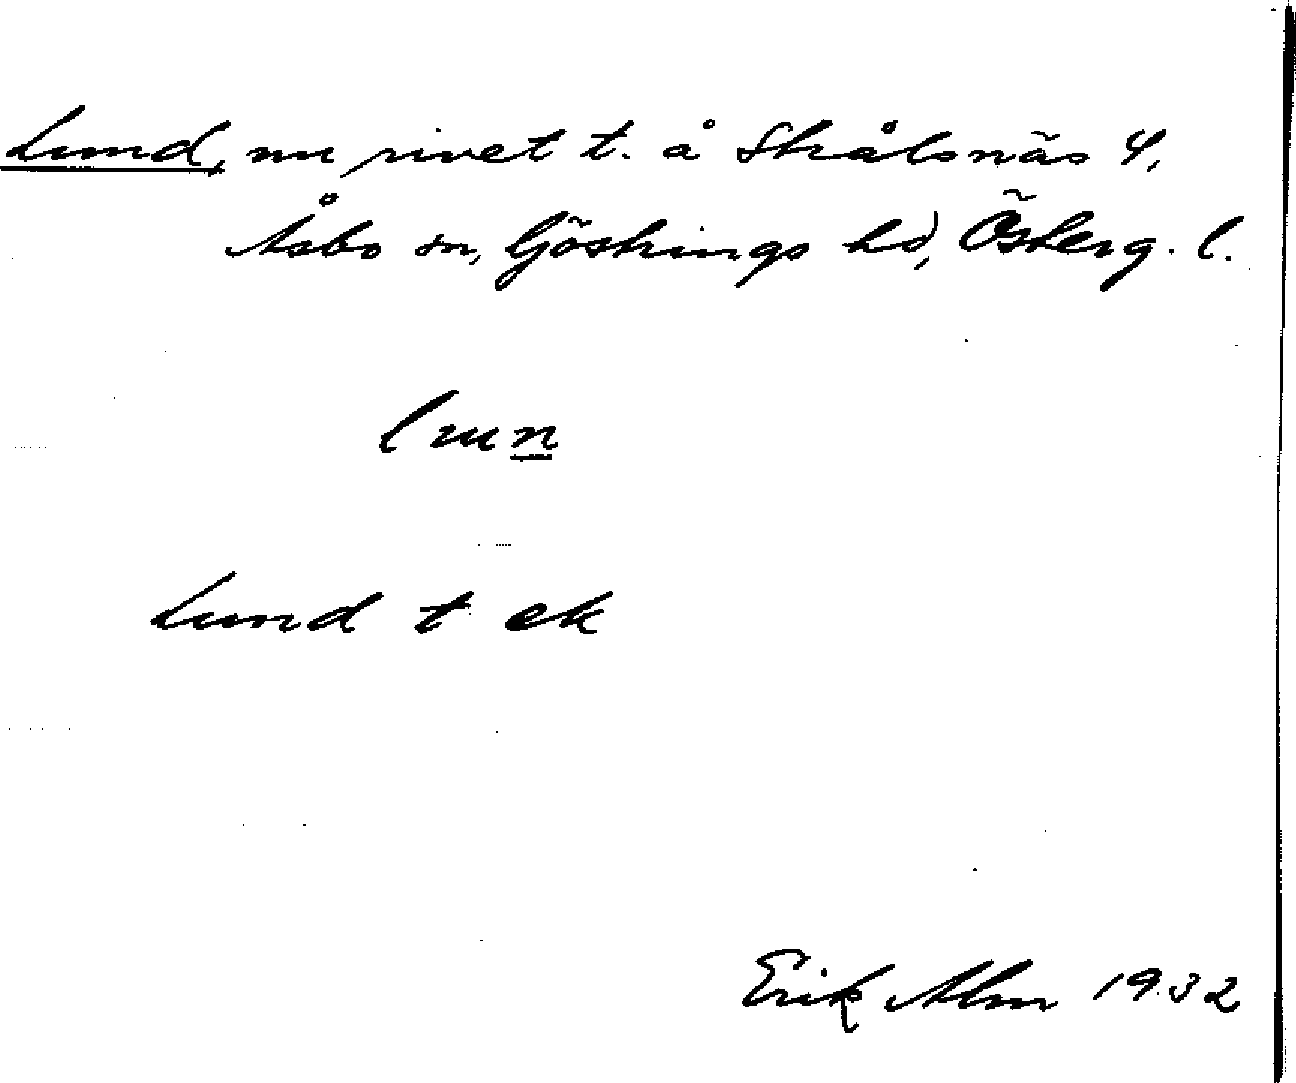 Lund, nu rivet t. å Strålsnäs 4,
Åsbo sn, Göstrings hd, Österg. l.
lun
Lund t ek
Erik Alm 1932